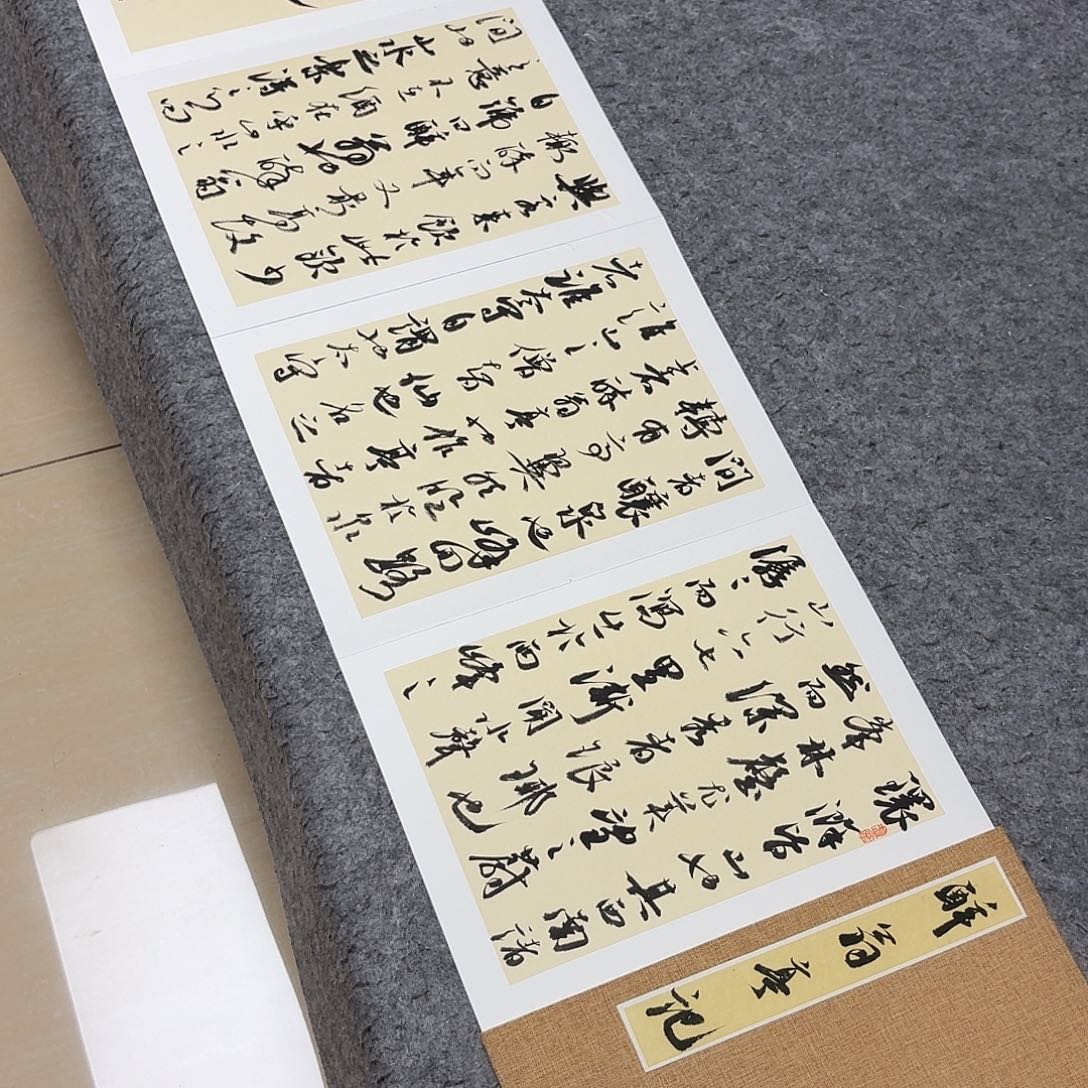 醉翁亭記
環滁皆山也其西南諸
峰林壑尤美望之蔚
然而深秀者琅琊也
山行六七里漸聞水聲
潺潺而瀉出於兩峰之
間者釀泉也峰回路
轉有亭翼然臨於泉
上者醉翁亭也作亭者
誰山之僧智仙也名之
者誰太守自謂也太守
與客來飲於此飲少
輒醉而年又最高故
自號曰醉翁也醉翁
之意不在酒在乎山水之
間也山水之樂得之